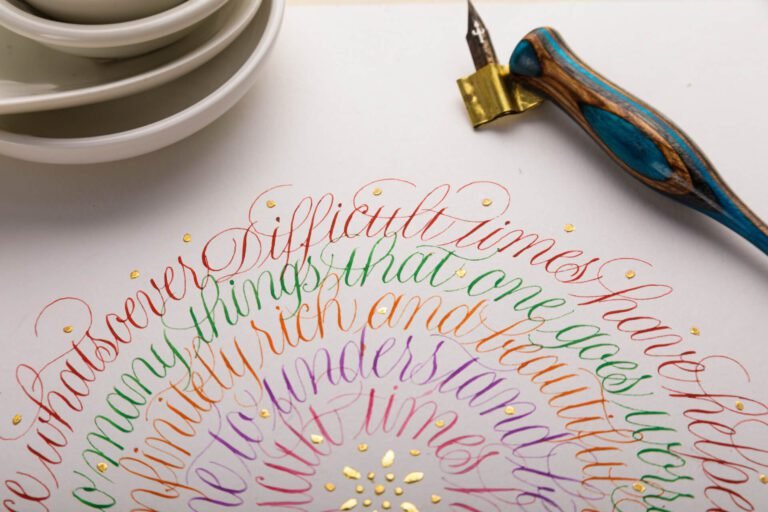 whatsoever Difficult times have helpe
many things that one goes worr
infinitely rich and beautiful
to understand
times